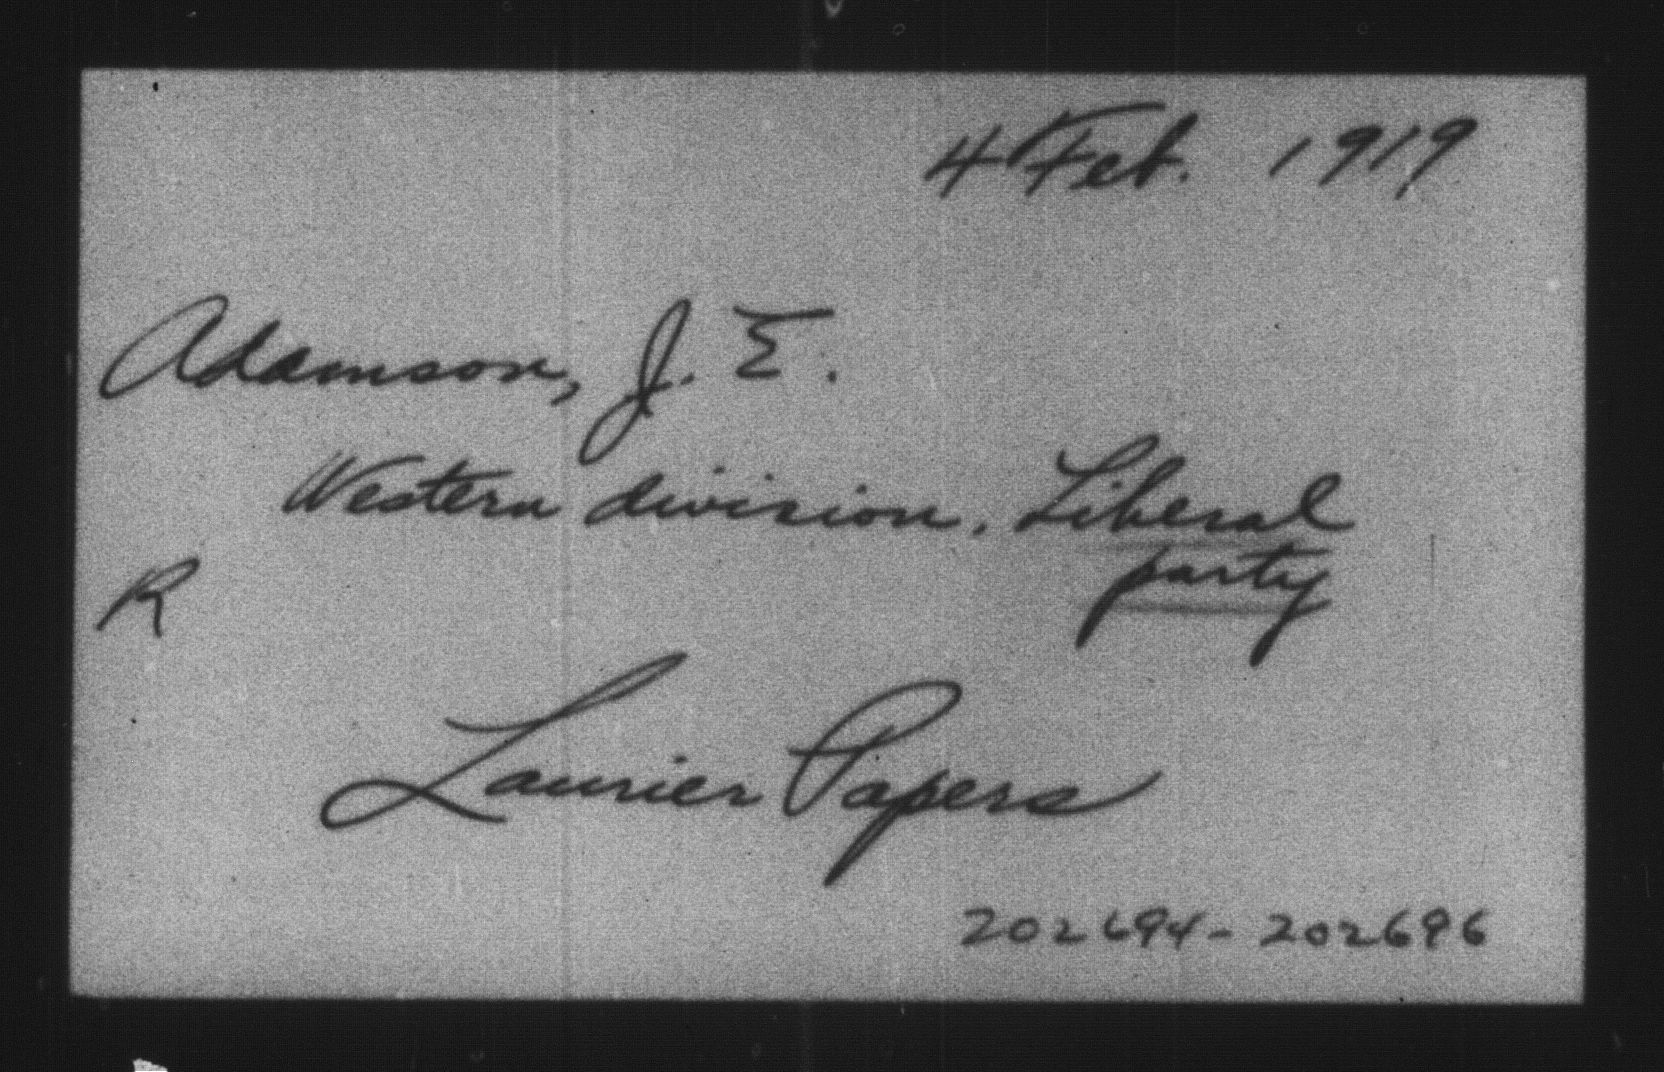 4 Feb. 1919
Adamson, J. E.
Western division, Liberal
party
R
Laurier Papers
202694-202696